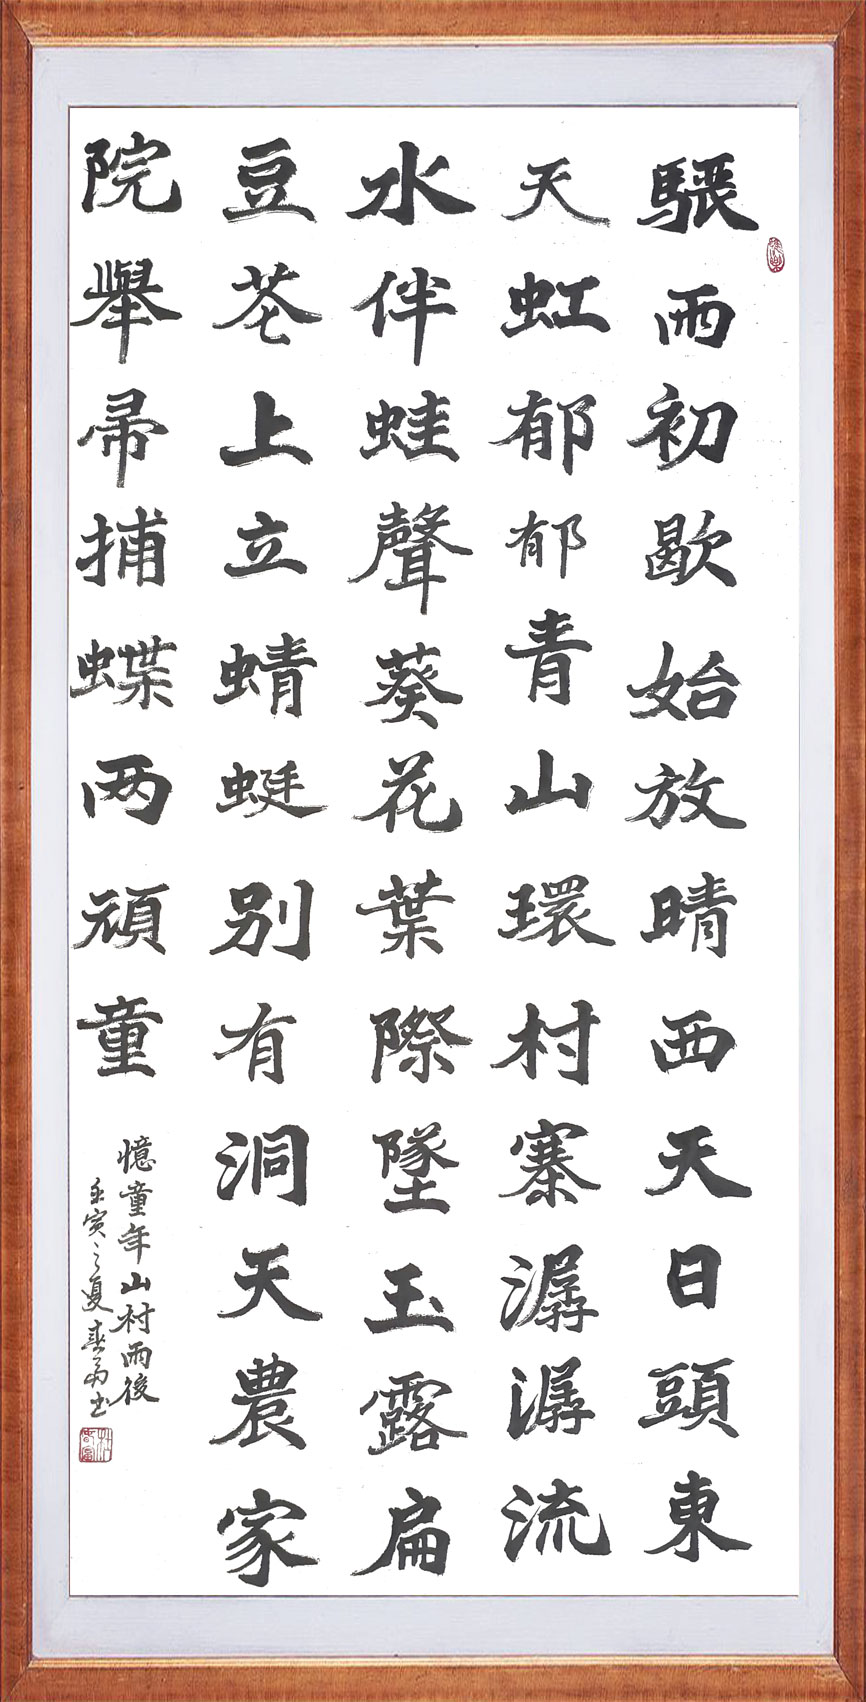 驟雨初歇始放晴西天日頭東
天虹郁郁青山環村寨潺潺流
水伴蛙聲葵花葉際墜玉露扁
豆苍上立蜻蜓别有洞天農家
院舉帚捕蝶两頑童
憶童年山村雨後
壬寅之夏春富书